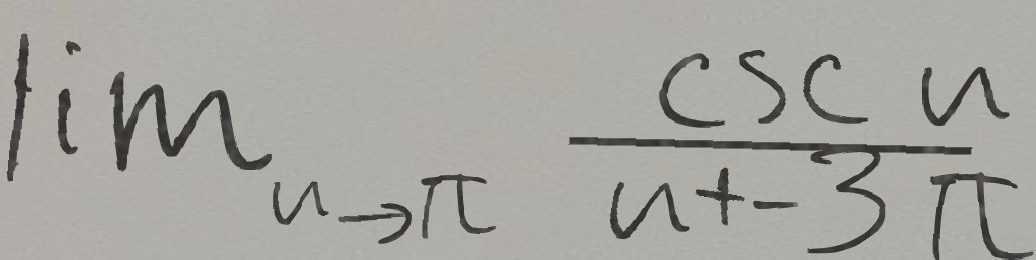 lim u→π csc u / u + -3π